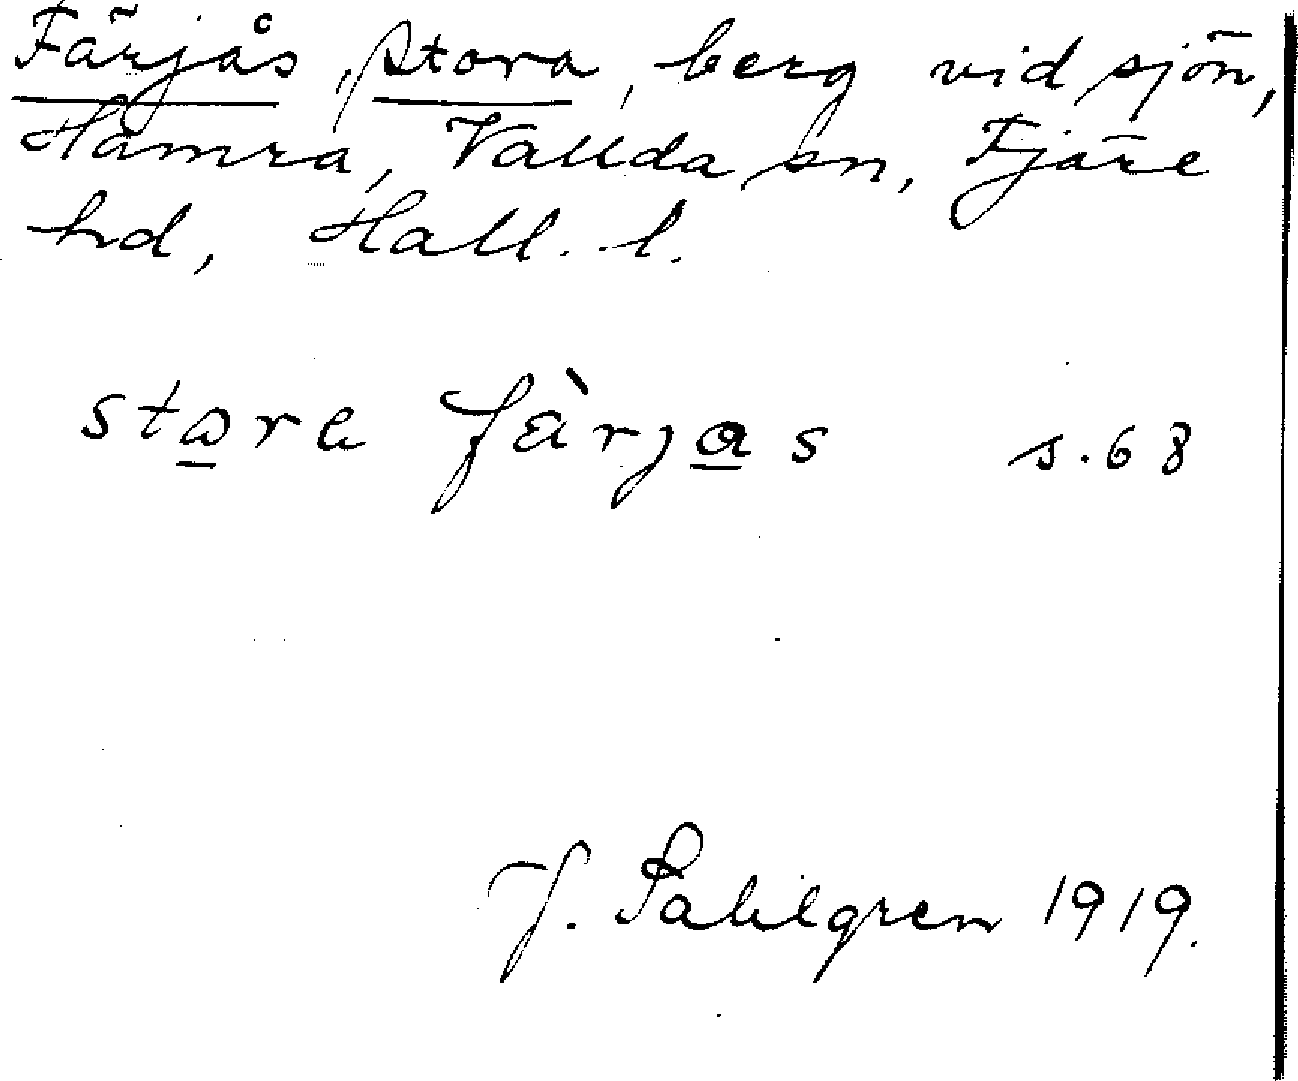 Färjås, stora, berg vid sjön,
Hamra, Vallda sn, Fjäre
hd, Hall. l.
stare färjas s. 68
J. Sahlgren 1919.